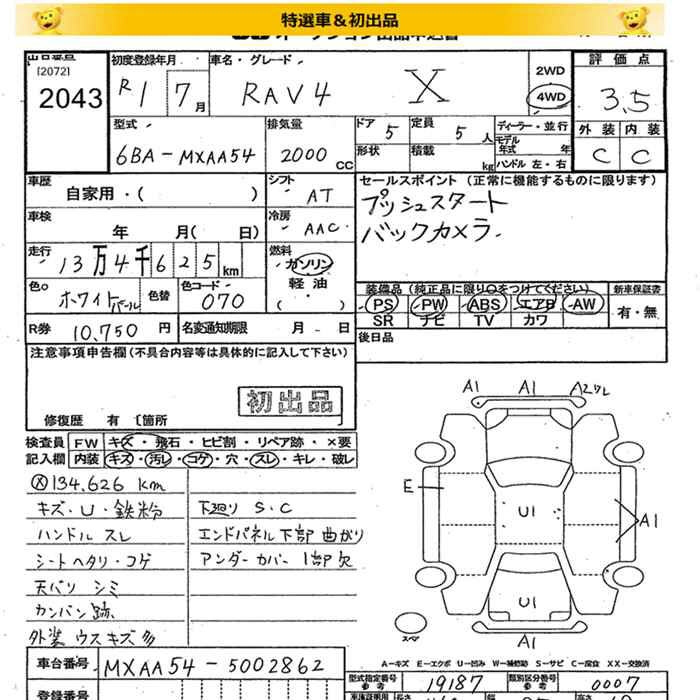 特選車＆初出品
出品番号
[2072]
2043
初度登録年月
R1 7月
車名・グレード
RAV4 X
2WD
4WD
評価点
3.5
外装 内装
C C
型式
6BA-MXAA54
排気量
2000 CC
ドア 5
定員 5 人
形状
積載 kg
ディーラー・並行
モデル年式 年
ハンドル 左・右
車歴
自家用・( )
シフト
AT
車検
年 月( 日)
冷房
AAC
走行
13万4千625km
燃料
ガソリン
軽油
( )
色
ホワイトパール
色替
色コード
070
R券 10,750 円
名変通知期限 月 日
セールスポイント（正常に機能するものに限ります）
プッシュスタート
バックカメラ
装備品（純正品に限り○をつけてください）
PS PW ABS エアB AW
SR ナビ TV カワ
新車保証書
有・無
後日品
注意事項申告欄(不具合内容等は具体的に記入して下さい)
初出品
修復歴 有〔箇所
検査員記入欄
FW キズ・飛石・ヒビ割・リペア跡・×要
内装 キズ・汚レ・コゲ・穴・スレ・キレ・破レ
134,626 km
キズ・U・鉄粉
ハンドル スレ
シートヘタリ・コゲ
天バリ シミ
カンバン跡
外装 ウスキズ多
下廻り S・C
エンドパネル下部 曲がり
アンダーカバー 1部欠
A1 A1 A2ワレ
E
U1
A1
U1
A1
スペア
A-キズ E-エクボ U-凹み W-補修跡 S-サビ C-腐食 XX-交換済
車台番号 MXAA54-5002862
型式指定番号 参考 19187
類別区分番号 参考 0007
登録番号